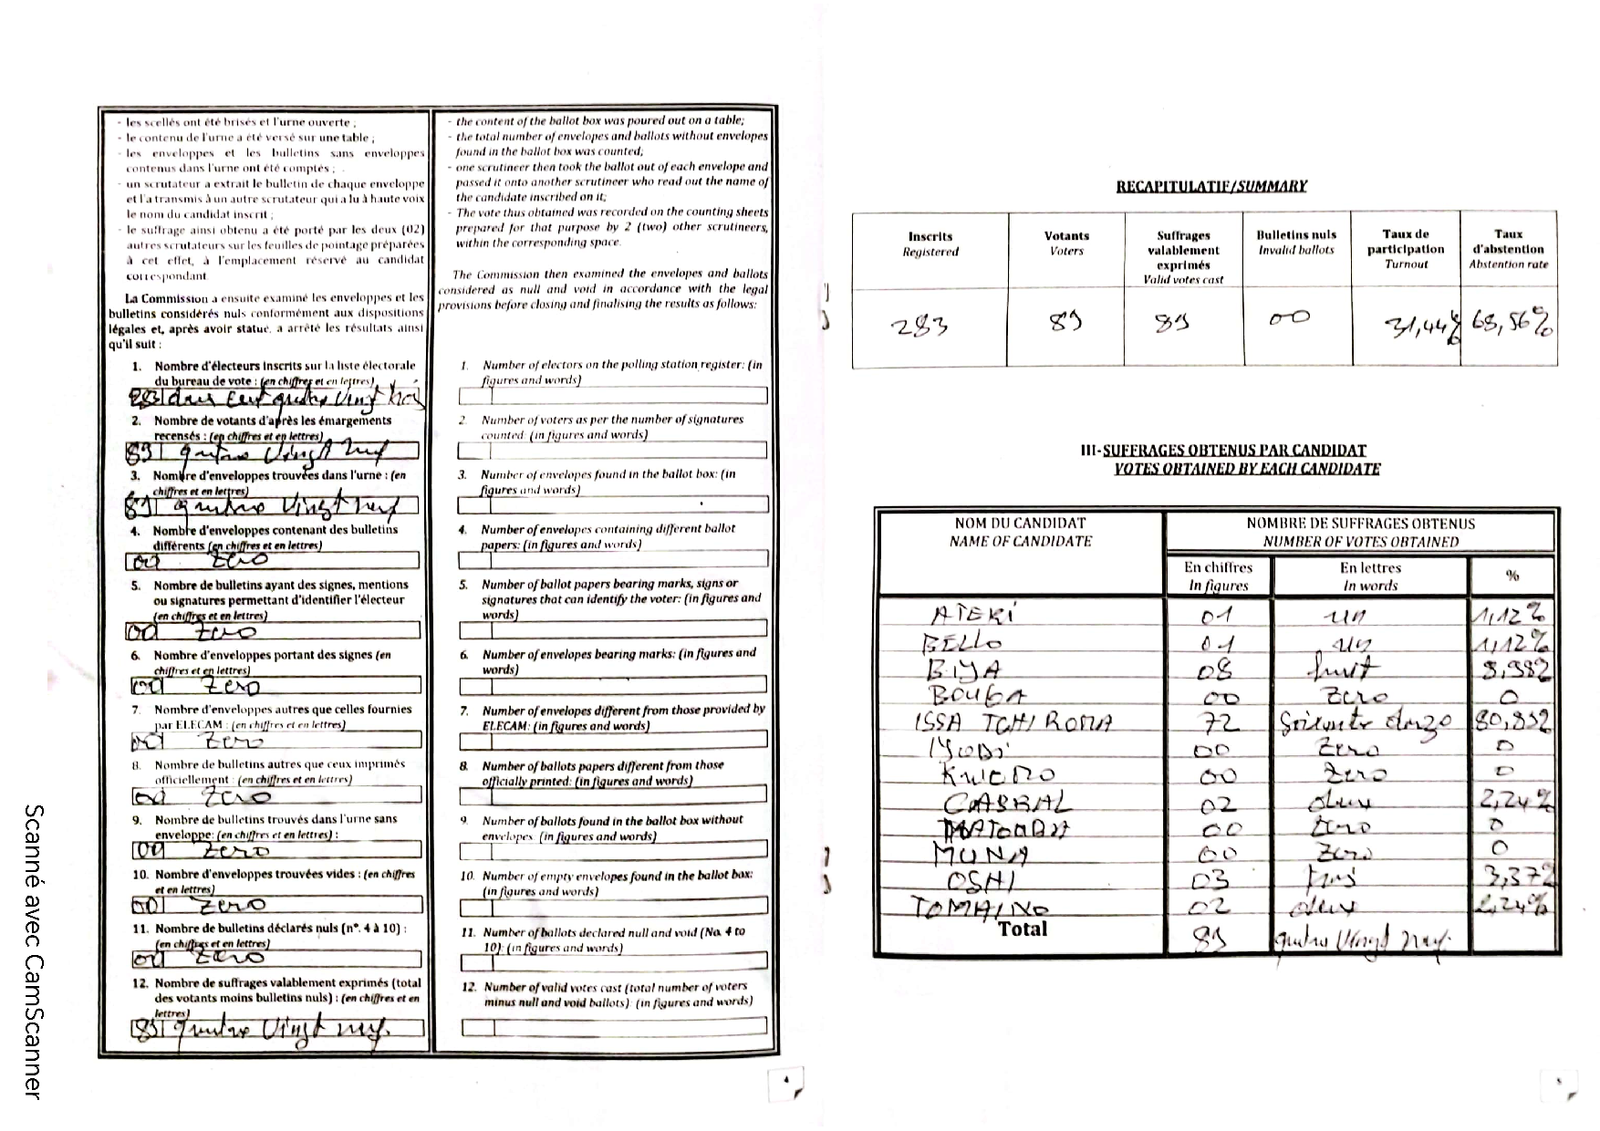 - les scellés ont été brisés et l'urne ouverte ;
- le contenu de l'urne a été versé sur une table ;
- les enveloppes et les bulletins sans enveloppes
contenus dans l'urne ont été comptés ;
- un scrutateur a extrait le bulletin de chaque enveloppe
et l'a transmis à un autre scrutateur qui a lu à haute voix
le nom du candidat inscrit ;
- le suffrage ainsi obtenu a été porté par les deux (02)
autres scrutateurs sur les feuilles de pointage préparées
à cet effet, à l'emplacement réservé au candidat
correspondant.
La Commission a ensuite examiné les enveloppes et les
bulletins considérés nuls conformément aux dispositions
légales et, après avoir statué, a arrêté les résultats ainsi
qu'il suit :
1. Nombre d'électeurs inscrits sur la liste électorale
du bureau de vote : (en chiffres et en lettres)
283 deux cent quatre vingt trois
2. Nombre de votants d'après les émargements
recensés : (en chiffres et en lettres)
89 quatre vingt neuf
3. Nombre d'enveloppes trouvées dans l'urne : (en
chiffres et en lettres)
89 quatre vingt neuf
4. Nombre d'enveloppes contenant des bulletins
différents (en chiffres et en lettres)
00 zero
5. Nombre de bulletins ayant des signes, mentions
ou signatures permettant d'identifier l'électeur
(en chiffres et en lettres)
00 zero
6. Nombre d'enveloppes portant des signes (en
chiffres et en lettres)
00 zero
7. Nombre d'enveloppes autres que celles fournies
par ELECAM : (en chiffres et en lettres)
00 zero
8. Nombre de bulletins autres que ceux imprimés
officiellement : (en chiffres et en lettres)
00 zero
9. Nombre de bulletins trouvés dans l'urne sans
enveloppe: (en chiffres et en lettres) :
00 zero
10. Nombre d'enveloppes trouvées vides : (en chiffres
et en lettres)
00 zero
11. Nombre de bulletins déclarés nuls (n°. 4 à 10) :
(en chiffres et en lettres)
00 zero
12. Nombre de suffrages valablement exprimés (total
des votants moins bulletins nuls) : (en chiffres et en
lettres)
89 quatre vingt neuf.
- the content of the ballot box was poured out on a table;
- the total number of envelopes and ballots without envelopes
found in the ballot box was counted;
- one scrutineer then took the ballot out of each envelope and
passed it onto another scrutineer who read out the name of
the candidate inscribed on it;
- The vote thus obtained was recorded on the counting sheets
prepared for that purpose by 2 (two) other scrutineers,
within the corresponding space.
The Commission then examined the envelopes and ballots
considered as null and void in accordance with the legal
provisions before closing and finalising the results as follows:
1. Number of electors on the polling station register: (in
figures and words)
2. Number of voters as per the number of signatures
counted: (in figures and words)
3. Number of envelopes found in the ballot box: (in
figures and words)
4. Number of envelopes containing different ballot
papers: (in figures and words)
5. Number of ballot papers bearing marks, signs or
signatures that can identify the voter: (in figures and
words)
6. Number of envelopes bearing marks: (in figures and
words)
7. Number of envelopes different from those provided by
ELECAM: (in figures and words)
8. Number of ballots papers different from those
officially printed: (in figures and words)
9. Number of ballots found in the ballot box without
envelopes (in figures and words)
10. Number of empty envelopes found in the ballot box:
(in figures and words)
11. Number of ballots declared null and void (No. 4 to
10): (in figures and words)
12. Number of valid votes cast (total number of voters
minus null and void ballots): (in figures and words)
4
RECAPITULATIF/SUMMARY
Inscrits Registered
Votants Voters
Suffrages valablement exprimés Valid votes cast
Bulletins nuls Invalid ballots
Taux de participation Turnout
Taux d'abstention Abstention rate
283 89 89 00 31,44% 68,56%
III-SUFFRAGES OBTENUS PAR CANDIDAT
VOTES OBTAINED BY EACH CANDIDATE
NOM DU CANDIDAT
NAME OF CANDIDATE
NOMBRE DE SUFFRAGES OBTENUS
NUMBER OF VOTES OBTAINED
En chiffres
In figures
En lettres
In words
%
ATEKI 01 un 1,12%
BELLO 01 un 1,12%
BIYA 08 huit 8,98%
BOUBA 00 zero 0
ISSA TCHIROMA 72 Soixante douze 80,89%
IYODI 00 zero 0
KWEMO 00 zero 0
CABRAL 02 deux 2,24%
MATOMBA 00 zero 0
MUNA 00 zero 0
OSHI 03 trois 3,37%
TOMAINO 02 deux 2,24%
Total 89 quatre vingt neuf.
Scanné avec CamScanner